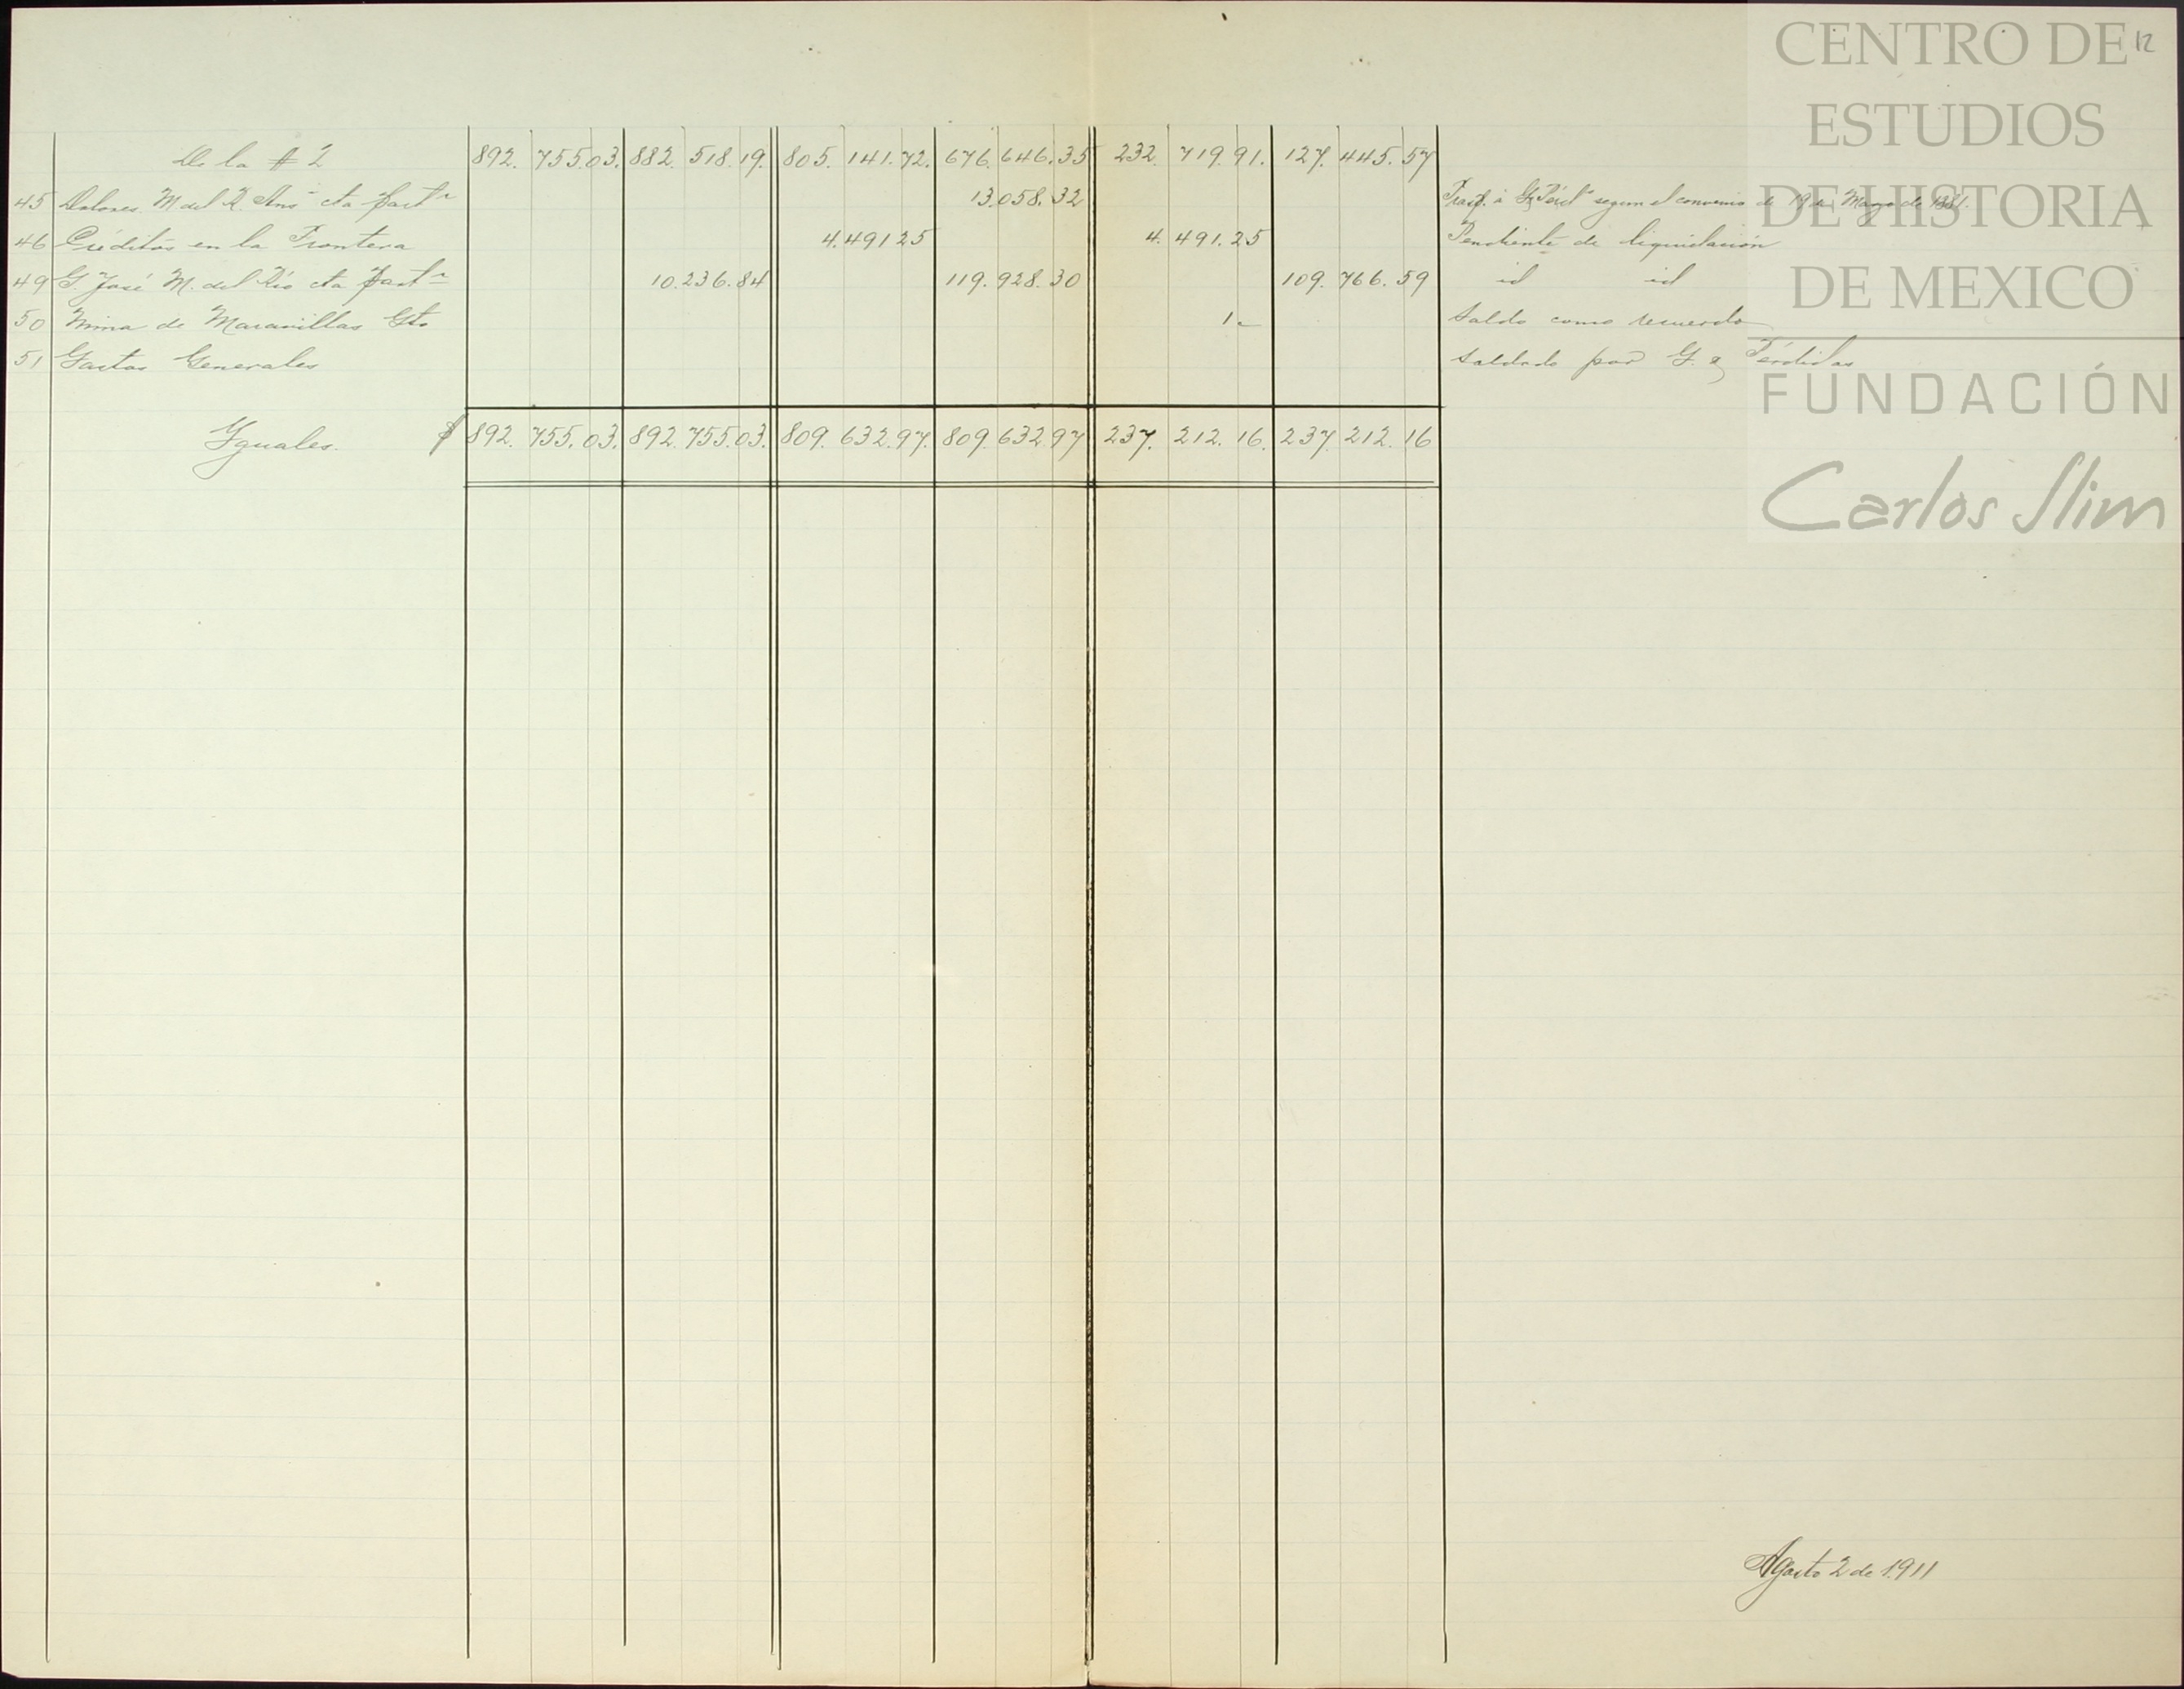 12
De la # 2 892. 755.03. 882. 518.19. 805. 141.72. 676. 646.35 232. 719.91. 127. 445.57
45 Dolores M del R. cta part.r 13.058.32 Trasp. á G y Perd.s segun el convenio de 19 de Mayo de 1881.
46 Créditos en la Frontera 4.491 25 4. 491.25 Pendiente de liquidación
49 G. José M. del Rio cta part.r 10.236.84 119.928.30 109. 766.59 id id
50 Mina de Maravillas Gto 1.- Saldo como recuerdo
51 Gastos Generales Saldado por G. y Pérdidas
Yguales. $ 892. 755.03. 892. 755.03. 809. 632.97. 809. 632 97 237. 212. 16. 237 212. 16
Agosto 2 de 1911
CENTRO DE
ESTUDIOS
DE HISTORIA
DE MEXICO
FUNDACIÓN
Carlos Slim